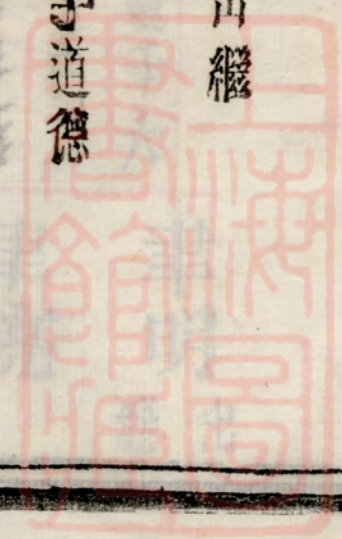 繼
道德
上海圖
書館藏